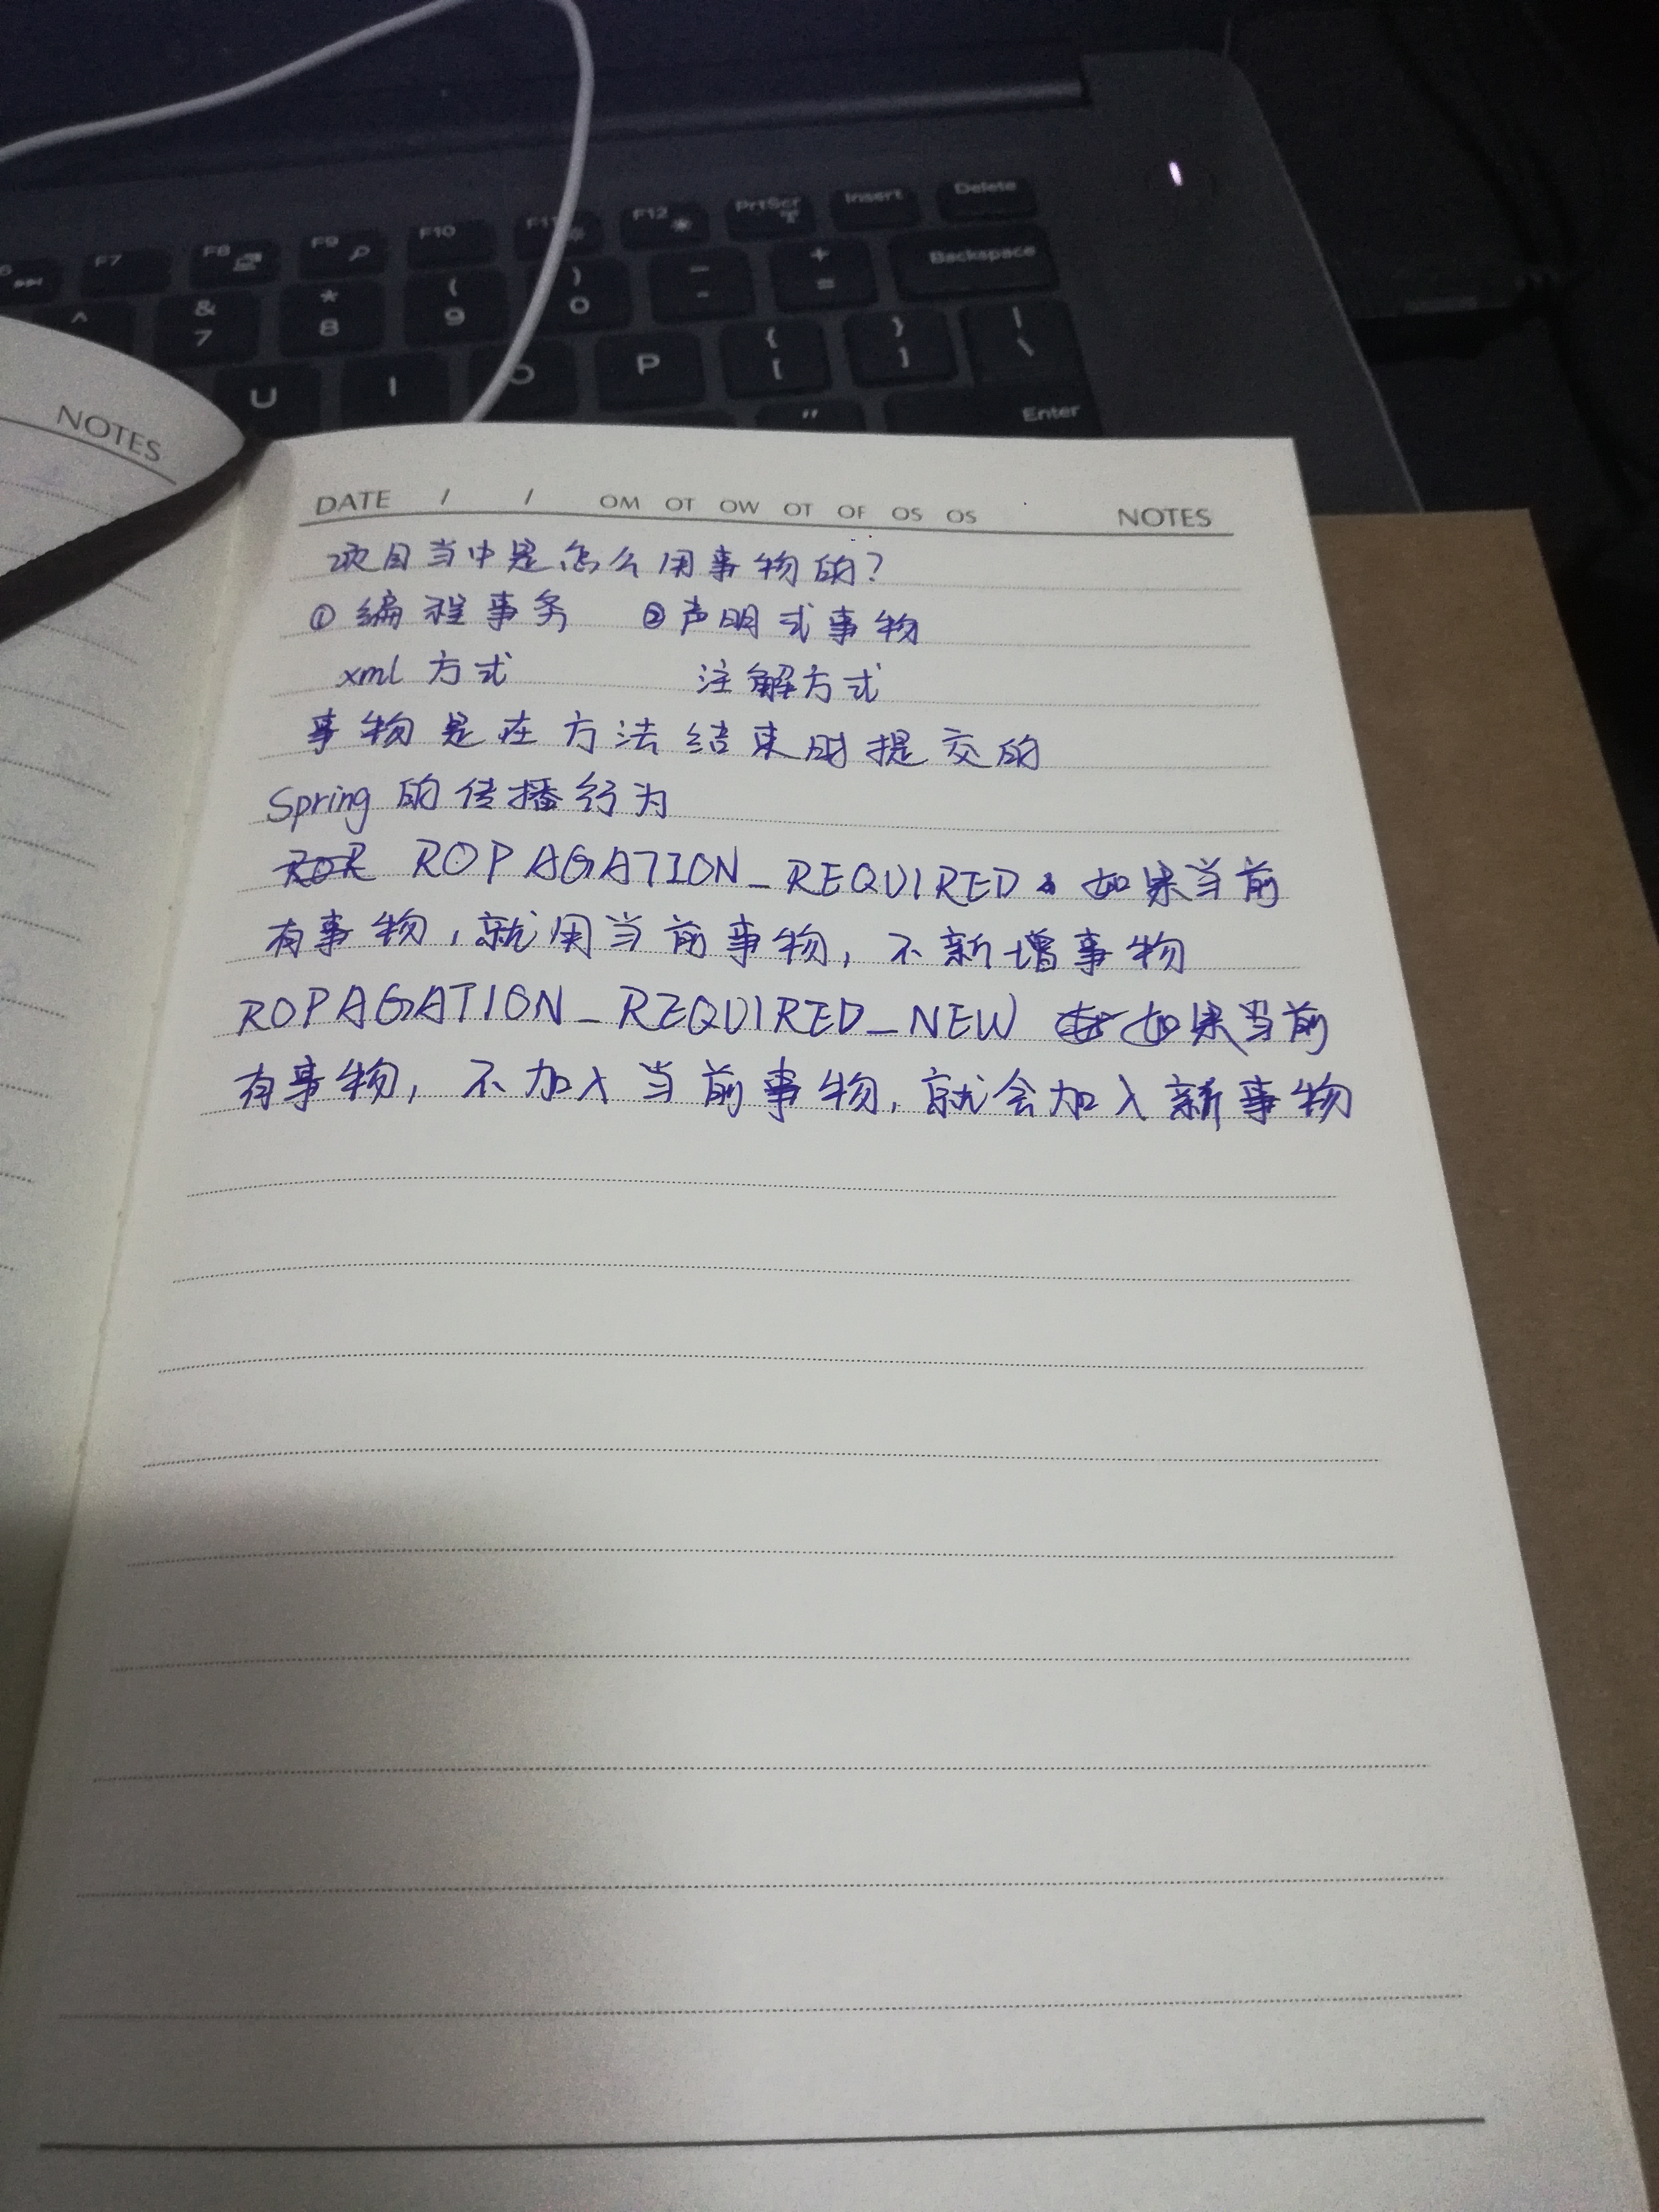 F7 F8 F9 F10 F11 F12 PrtScr Insert Delete
^ & 7 * 8 ( 9 ) 0 - + = Backspace
U I O P { [ } ] | \
" Enter
NOTES
DATE / / OM OT OW OT OF OS OS NOTES
项目当中是怎么用事物的?
① 编程事务 ②声明式事物
xml 方式 注解方式
事物是在方法结束时提交的
Spring 的传播行为
ROPAGATION_REQUIRED 如果当前
有事物,就用当前事物,不新增事物
ROPAGATION_REQUIRED_NEW 如果当前
有事物,不加入当前事物,就会加入新事物